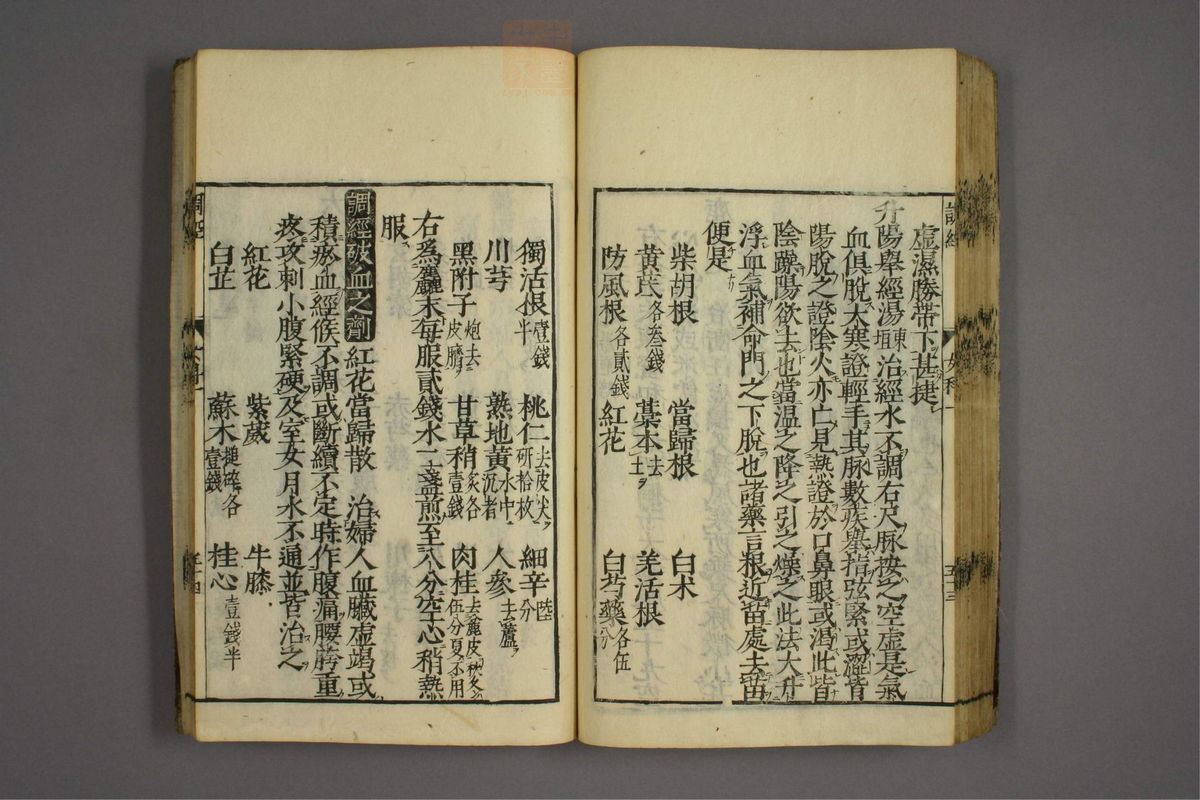 虛濕勝帶下甚捷
升陽舉經湯東垣治經水不調右尺脉按之空虛是氣
血俱脫大寒證輕手其脉數疾舉指弦緊或澀皆
陽脫之證陰火亦亡見熱證於口鼻眼或渴此皆
陰躁陽欲先去也當温之降之引之燥之此法大升
浮血氣補命門之下脫也諸藥言根近苗處去苗
便是
柴胡根 當歸根 白术
黃芪各叁錢 藁本去土 羌活根
防風根各貳錢 紅花 白芍藥各伍分
獨活根壹錢半 桃仁去皮尖研拾枚 細辛陸分
川芎 熟地黃水中沉者 人參去蘆
黑附子炮去皮臍 甘草稍炙各壹錢 肉桂去麄皮秋冬伍分夏不用
右爲麤末每服貳錢水二盞煎至八分空心稍熱
服
調經破血之劑 紅花當歸散 治婦人血臟虛竭或
積瘀血經候不調或斷續不定時作腹痛腰胯重
疼攻刺小腹緊硬及室女月水不通並皆治之
紅花 紫葳 牛膝
白芷 蘇木搥碎各壹錢 桂心壹錢半
調經
女科一
五十三
調經
女科一
五十四